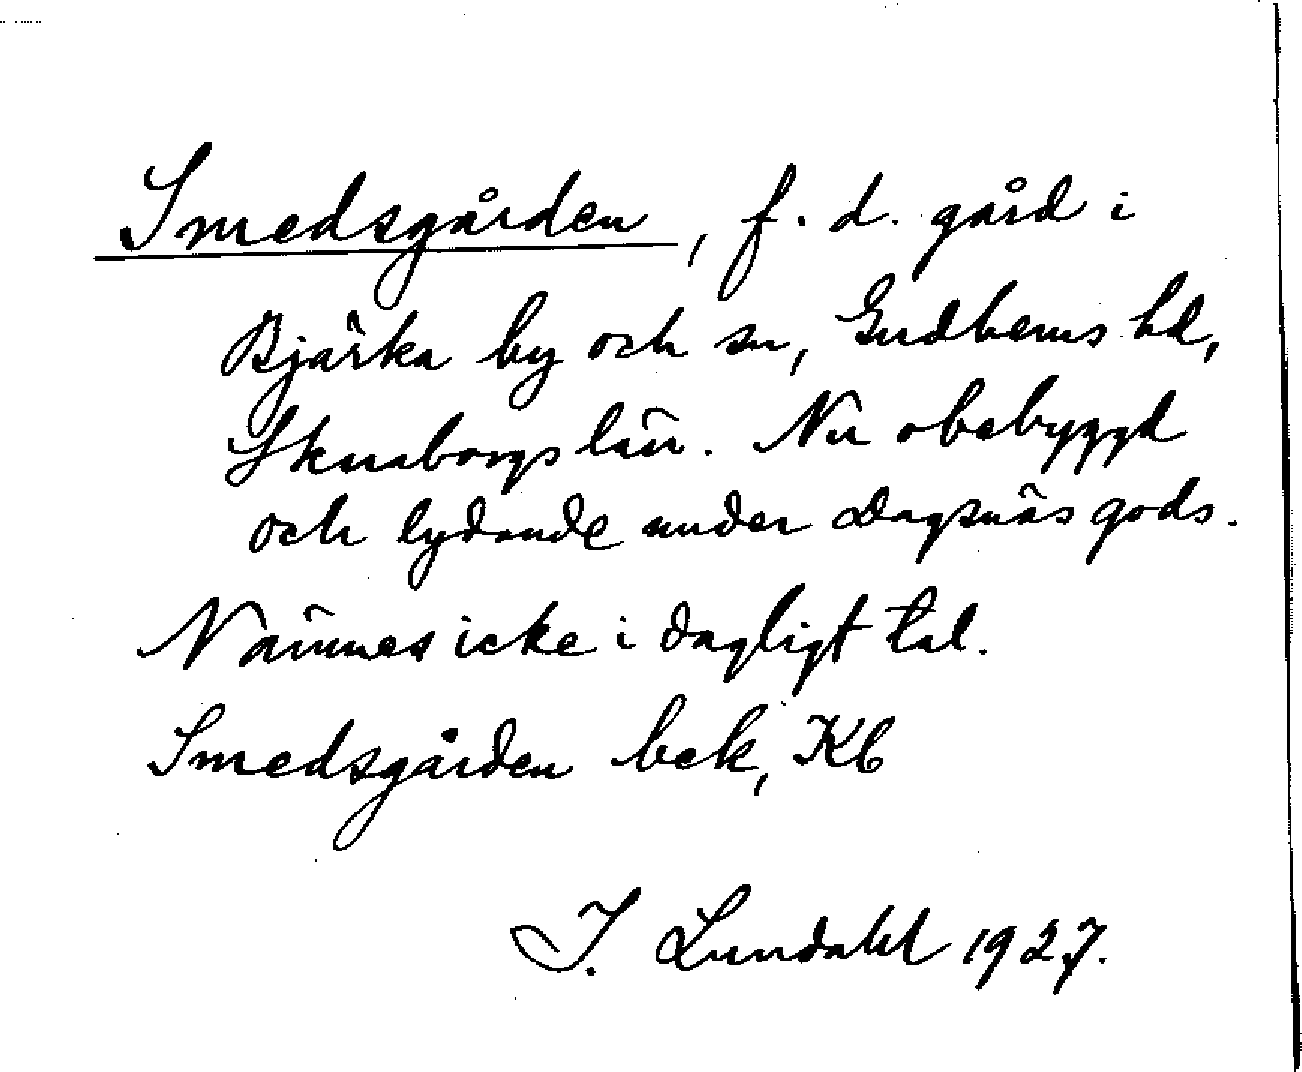 Smedsgården, f. d. gård i
Bjärka by och sn, Gudhems hd,
Skaraborgs län. Nu obebyggd
och lydande under Dagsnäs gods.
Nämnes icke i dagligt tal.
Smedsgården bek, Kb
I. Lundahl 1927.